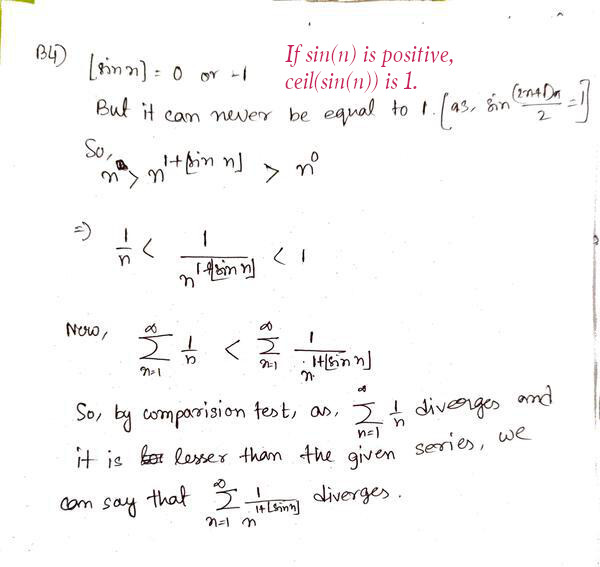 B4) [sin n] = 0 or -1
If sin(n) is positive,
ceil(sin(n)) is 1.
But it can never be equal to 1. [as, sin (2n+1)π/2 = 1]
So,
n > n^{1+⌊sin n⌋} > n^0
=) 1/n < 1/n^{1+⌊sin n⌋} < 1
Now, ∑_{n=1}^{∞} 1/n < ∑_{n=1}^{∞} 1/n^{1+⌊sin n⌋}
So, by comparision test, as, ∑_{n=1}^{∞} 1/n diverges and
it is lesser than the given series, we
can say that ∑_{n=1}^{∞} 1/n^{1+⌊sin n⌋} diverges.